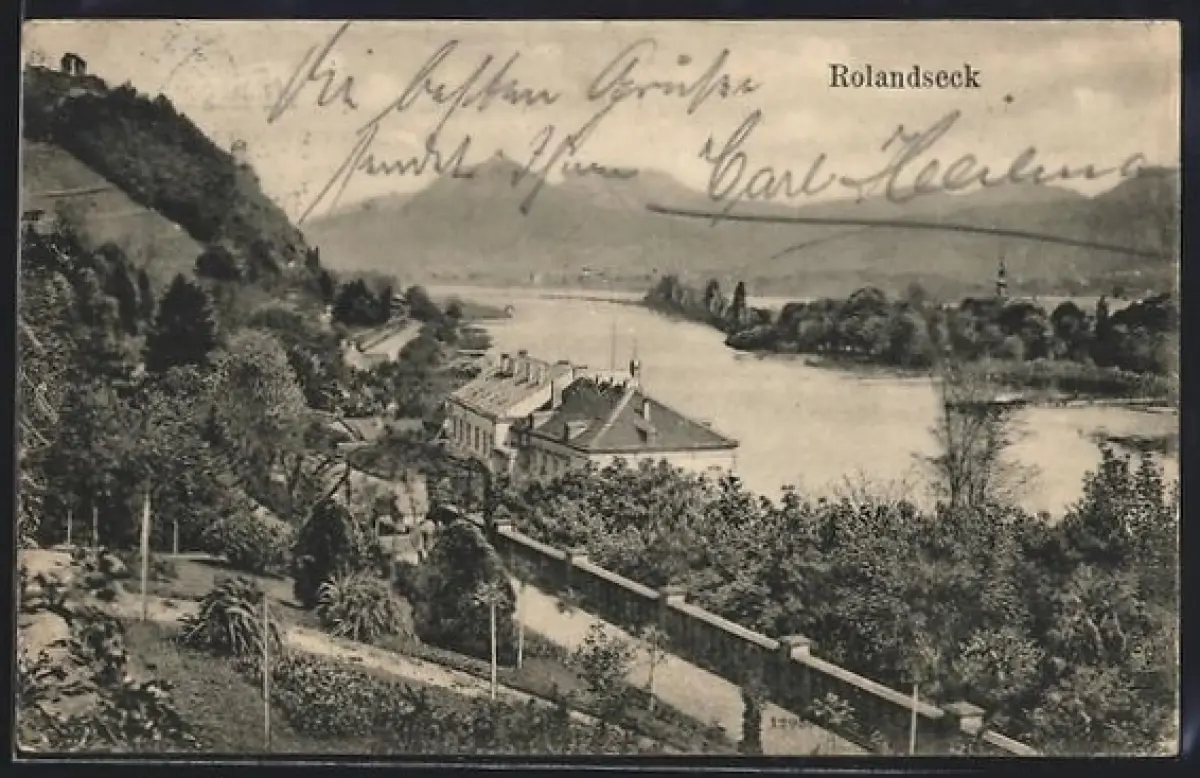 Rolandseck
Die besten Grüße
sendet Ihnen Carl
129